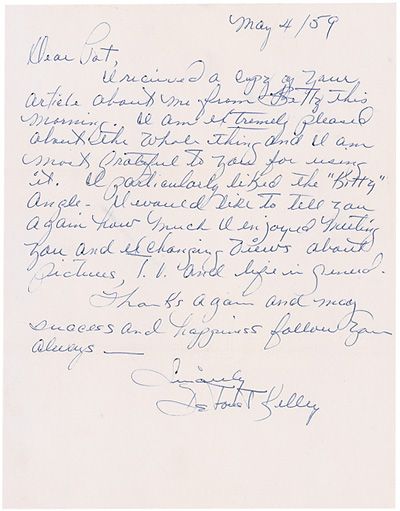 May 4/59
Dear Pat,
I received a copy of your
article about me from Betty this
morning. I am extremely pleased
about the whole thing and I am
most grateful to you for using
it. I particularly liked the "Betty"
angle - I would like to tell you
again how much I enjoyed meeting
you and exchanging views about
pictures, T.V. and life in general.
Thanks again and may
success and happiness follow you
always —
Sincerely
DeForest Kelley